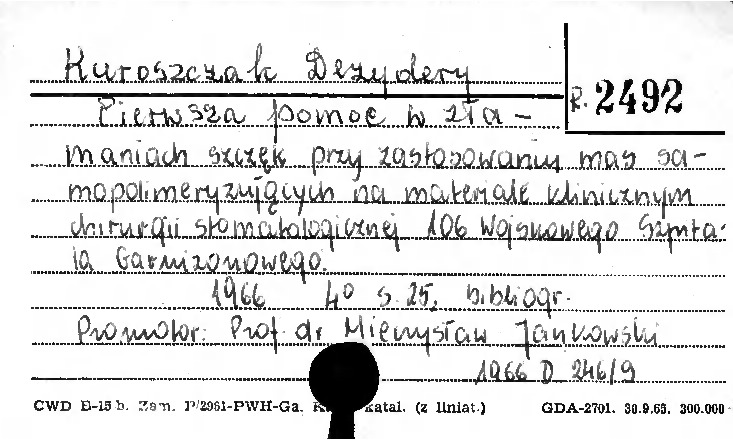 Kuroszczak Dezydery
R. 2492
Pierwsza pomoc w zła-
maniach szczęk przy zastosowaniu mas sa-
mopolimeryzujących na materiale klinicznym
chirurgii stomatologicznej 106 Wojskowego Szpita-
la Garnizonowego.
1966 4° s. 25, bibliogr.
Promotor: Prof. dr Mieczysław Jankowski
1966 D 246/9
CWD B-15 b. Zam. P/2961-PWH-Ga. katal. (z liniat.) GDA-2701. 30.9.65. 300.000